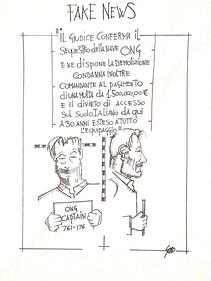 FAKE NEWS
"IL GIUDICE CONFERMA IL
SEQUESTRO DELLA NAVE ONG
E NE DISPONE LA DEMOLIZIONE
CONDANNA INOLTRE
COMANDANTE AL PAGAMENTO
DI UNA MULTA DA 1.500.000,00 €
E IL DIVIETO DI ACCESSO
SUL SUOLO ITALIANO DA QUI
A 30 ANNI ESTESO A TUTTO
L'EQUIPAGGIO"
ONG
CAPTAIN
761-176